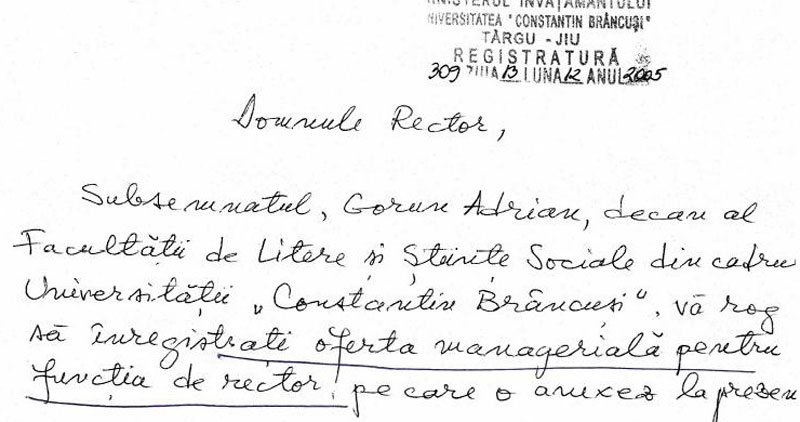 MINISTERUL ÎNVĂȚĂMÂNTULUI
NIVERSITATEA "CONSTANTIN BRÂNCUȘI"
TÂRGU - JIU
REGISTRATURĂ
309 ZIUA 13 LUNA 12 ANUL 2005
Domnule Rector,
Subsemnatul, Gorun Adrian, decan al
Facultății de Litere și Științe Sociale din cadru
Universității „Constantin Brâncuși", vă rog
să înregistrați oferta managerială pentru
funcția de rector, pe care o anexez la prezen